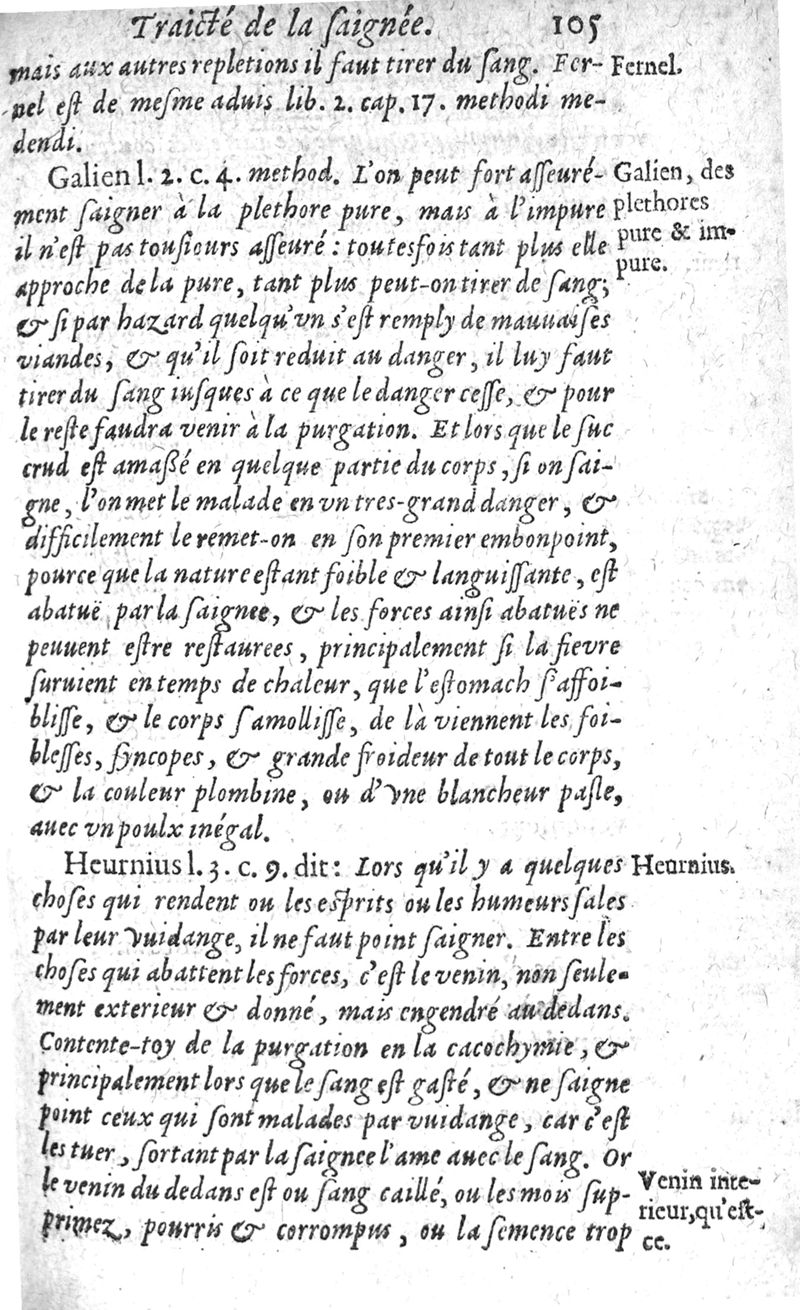 Traicté de la ſaignée. 105
mais aux autres repletions il faut tirer du ſang. Fer-
nel eſt de meſme aduis lib. 2. cap. 17. methodi me-
dendi.
Fernel.
Galien l. 2. c. 4. method. L'on peut fort aſſeuré-
ment ſaigner à la plethore pure, mais à l'impure
il n'eſt pas touſiours aſſeuré : toutesfois tant plus elle
approche de la pure, tant plus peut-on tirer de ſang;
& ſi par hazard quelqu'vn s'eſt remply de mauuaiſes
viandes, & qu'il ſoit reduit au danger, il luy faut
tirer du ſang iuſques à ce que le danger ceſſe, & pour
le reſte faudra venir à la purgation. Et lors que le ſuc
crud eſt amaßé en quelque partie du corps, ſi on ſai-
gne, l'on met le malade en vn tres-grand danger, &
difficilement le remet-on en ſon premier embonpoint,
pource que la nature eſtant foible & languiſſante, eſt
abatuë par la ſaignee, & les forces ainſi abatuës ne
peuuent eſtre reſtaurees, principalement ſi la fievre
ſuruient en temps de chaleur, que l'eſtomach ſ'affoi-
bliſſe, & le corps ſamolliſſe, de là viennent les foi-
bleſſes, ſyncopes, & grande froideur de tout le corps,
& la couleur plombine, ou d'vne blancheur paſle,
auec vn poulx inégal.
Galien, des
plethores
pure & im-
pure.
Heurnius l. 3. c. 9. dit: Lors qu'il y a quelques
choſes qui rendent ou les eſprits ou les humeurs ſales
par leur vuidange, il ne faut point ſaigner. Entre les
choſes qui abattent les forces, c'eſt le venin, non ſeule-
ment exterieur & donné, mais engendré au dedans.
Contente-toy de la purgation en la cacochymie, &
principalement lors que le ſang eſt gaſté, & ne ſaigne
point ceux qui ſont malades par vuidange, car c'eſt
les tuer, ſortant par la ſaignee l'ame auec le ſang. Or
le venin du dedans eſt ou ſang caillé, ou les mois ſup-
primez, pourris & corrompus, ou la ſemence trop
Heurnius.
Venin inte-
rieur, qu'eſt-
ce.